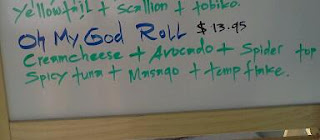 Yellowtail + Scallion + tobiko.
Oh My God Roll $13.95
Creamcheese + Avocado + Spider top
Spicy tuna + Masago + tempflake.